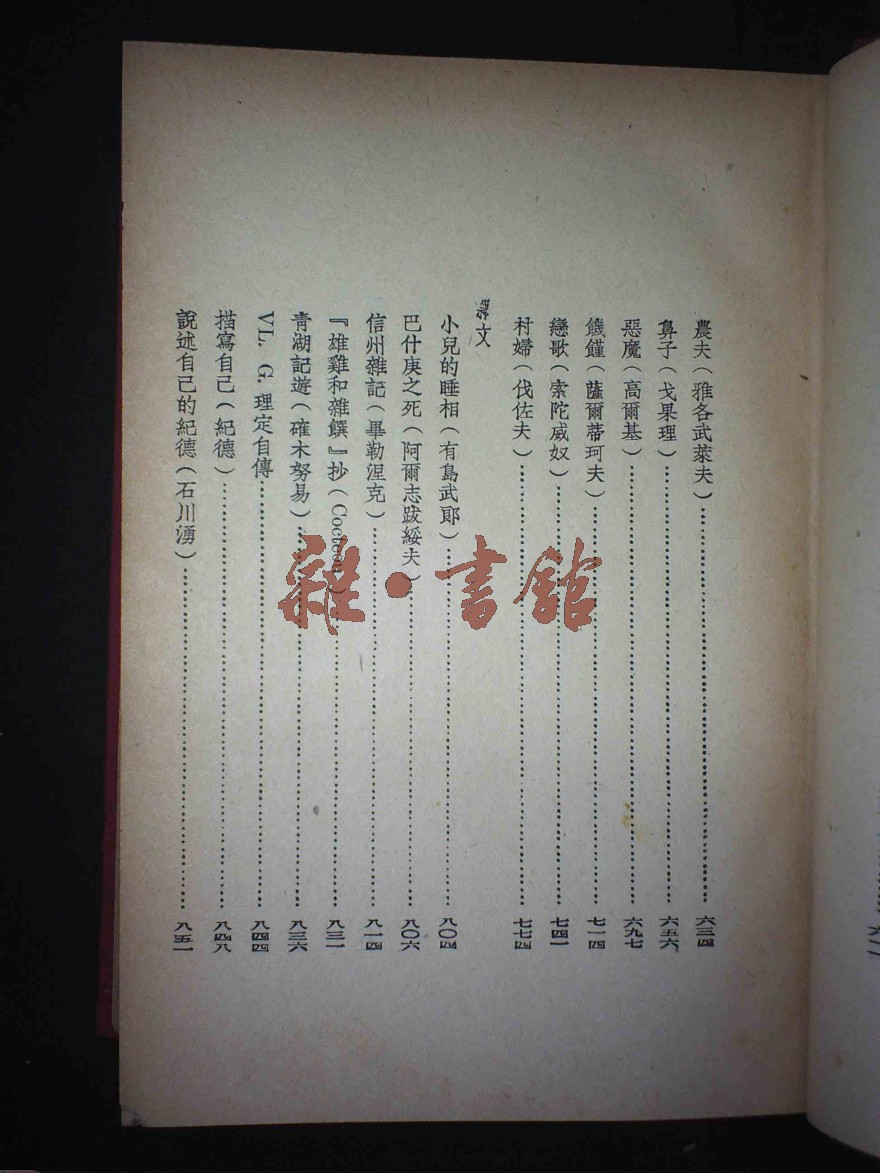 農夫（雅各武萊夫）……六三四
鼻子（戈果理）……六五六
惡魔（高爾基）……六九七
饑饉（薩爾蒂珂夫）……七一四
戀歌（索陀威奴）……七四一
村婦（伐佐夫）……七七四
文
小兒的睡相（有島武郎）……八〇四
巴什庚之死（阿爾志跋綏夫）……八〇六
信州雜記（畢勒涅克）……八一四
『雄雞和雜饌』抄（……八三一
青湖記遊（確木努易）……八三六
VL. G. 理定自傳……八四四
描寫自己（紀德）……八四八
說述自己的紀德（石川湧）……八五一
雜·書館